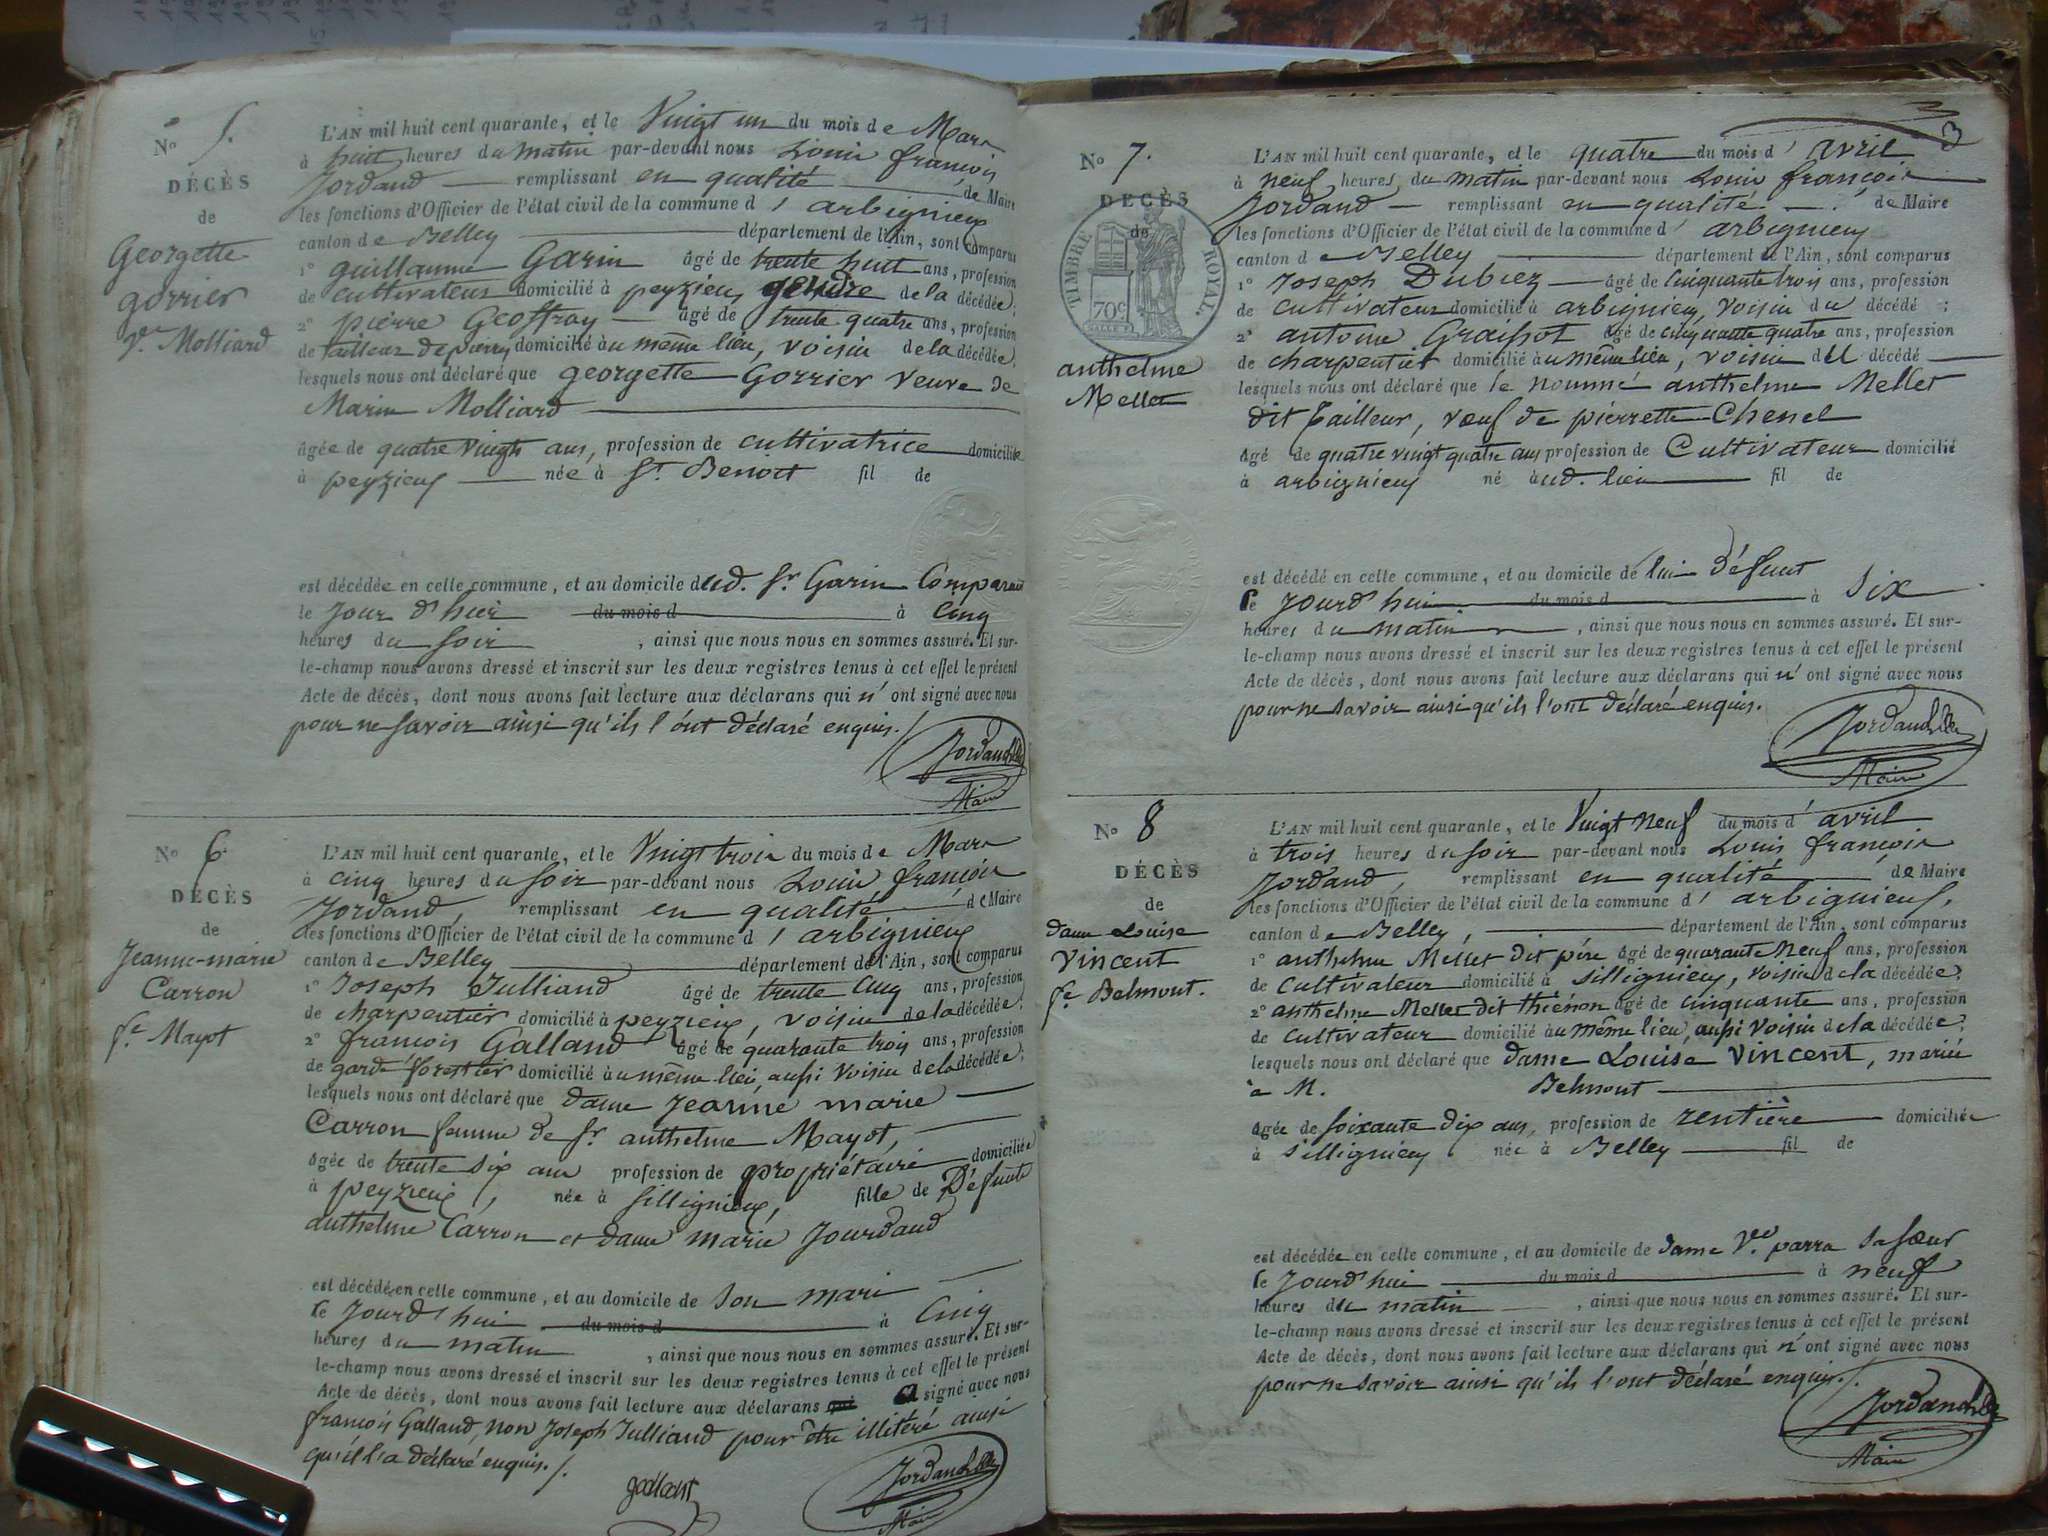 N° 5.
DÉCÈS
de
Georgette
gorrier
Ve Molliard
L'AN mil huit cent quarante, et le Vingt un du mois de Mars
à huit heures du matin par-devant nous Louis françois
Jordand remplissant en qualité de Maire
les fonctions d'Officier de l'état civil de la commune d'arbignieu
canton de Belley département de l'Ain, sont comparus
1° guillaume Garin âgé de trente huit ans, profession
de cultivateur domicilié à peyzieu gendre de la décédée;
2° pierre Geoffray âgé de trente quatre ans, profession
de tailleur de pierres domicilié au même lieu, voisin de la décédée,
lesquels nous ont déclaré que georgette Gorrier veuve de
Marin Molliard
âgée de quatre vingts ans, profession de cultivatrice domiciliée
à peyzieu née à St Benoit fil de
est décédée en celle commune, et au domicile dud. Sr Garin Comparant
le Jour d'hier du mois d à Cinq
heures du soir, ainsi que nous nous en sommes assuré. Et sur-
le-champ nous avons dressé et inscrit sur les deux registres tenus à cet effet le présent
Acte de décès, dont nous avons fait lecture aux déclarans qui n'ont signé avec nous
pour ne savoir ainsi qu'ils l'ont déclaré enquis./.
Maire
N° 6.
DÉCÈS
de
Jeanne-marie
Carron
fe Mayot
L'AN mil huit cent quarante, et le Vingt trois du mois de Mars
à cinq heures du soir par-devant nous Louis françois
Jordand, remplissant en qualité de Maire
les fonctions d'Officier de l'état civil de la commune d'arbignieu
canton de Belley département de l'Ain, sont comparus
1° Joseph Julliand âgé de trente cinq ans, profession
de charpentier domicilié à peyzieu, voisin de la décédée;
2° françois Galland âgé de quarante trois ans, profession
de garde forestier domicilié au même lieu, aussi voisin de la décédée;
lesquels nous ont déclaré que dame Jeanne marie
Carron femme de Sr anthelme Mayot,
âgée de trente six ans profession de propriétaire domiciliée
à peyzieu, née à Sillignieu, fille de Défunts
anthelme Carron et dame marie Jourdand
est décédée en celle commune, et au domicile de son mari
le Jourd'hui du mois d à Cinq
heures du matin, ainsi que nous nous en sommes assuré. Et sur-
le-champ nous avons dressé et inscrit sur les deux registres tenus à cet effet le présent
Acte de décès, dont nous avons fait lecture aux déclarans qui a signé avec nous
françois Galland, non Joseph Julliand pour être illitéré ainsi
qu'il l'a déclaré enquis./.
gallant
Maire
3
N° 7.
DECÈS
de
TIMBRE ROYAL
70c
anthelme
Mellet
L'AN mil huit cent quarante, et le quatre du mois d'avril
à neuf heures du matin par-devant nous Louis françois
Jordand remplissant en qualité de Maire
les fonctions d'Officier de l'état civil de la commune d'arbignieu
canton de Belley département de l'Ain, sont comparus
1° Joseph Dubiez âgé de Cinquante trois ans, profession
de cultivateur domicilié à arbignieu, voisin du décédé;
2° antoine Graissot âgé de cinquante quatre ans, profession
de charpentier domicilié au même lieu, voisin du décédé
lesquels nous ont déclaré que le nommé anthelme Mellet
dit tailleur, veuf de pierrette Chenel
âgé de quatre vingt quatre ans profession de Cultivateur domicilié
à arbignieu né aud. lieu fil de
est décédé en celle commune, et au domicile de lui défunt
le Jourd'hui du mois d à Six
heures du matin, ainsi que nous nous en sommes assuré. Et sur-
le-champ nous avons dressé et inscrit sur les deux registres tenus à cet effet le présent
Acte de décès, dont nous avons fait lecture aux déclarans qui n'ont signé avec nous
pour ne savoir ainsi qu'ils l'ont déclaré enquis.
Maire
N° 8
DÉCÈS
de
dame Louise
Vincent
fe Belmont.
L'AN mil huit cent quarante, et le Vingt neuf du mois d'avril
à trois heures du soir par-devant nous Louis françois
Jordand, remplissant en qualité de Maire
les fonctions d'Officier de l'état civil de la commune d'arbignieu,
canton de Belley, département de l'Ain, sont comparus
1° anthelme Mellet dit père âgé de quarante neuf ans, profession
de Cultivateur domicilié à Sillignieu, voisin de la décédée;
2° anthelme Mellet dit thiénon âgé de cinquante ans, profession
de cultivateur domicilié au même lieu, aussi voisin de la décédée;
lesquels nous ont déclaré que dame Louise Vincent, mariée
à M. Belmont
âgée de soixante dix ans, profession de rentière domiciliée
à Sillignieu née à Belley fil de
est décédée en celle commune, et au domicile de dame Ve parra sa sœur
le Jourd'hui du mois d à neuf
heures du matin, ainsi que nous nous en sommes assuré. Et sur-
le-champ nous avons dressé et inscrit sur les deux registres tenus à cet effet le présent
Acte de décès, dont nous avons fait lecture aux déclarans qui n'ont signé avec nous
pour ne savoir ainsi qu'ils l'ont déclaré enquis./.
Maire